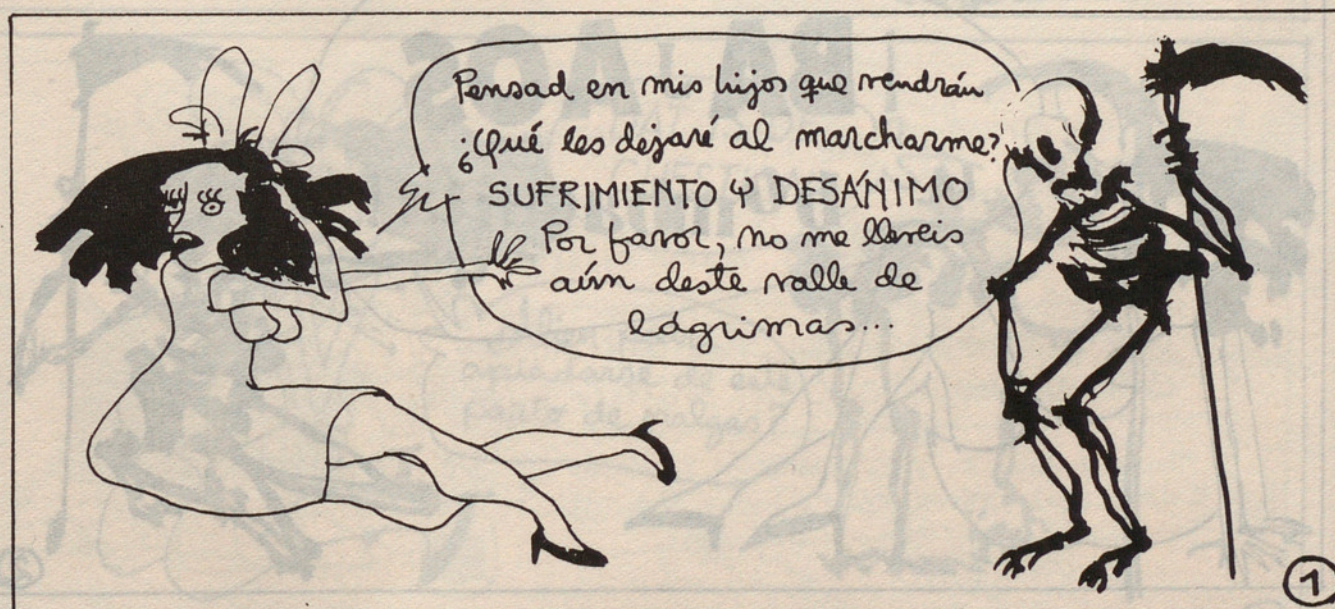 Pensad en mis hijos que vendrán
¿Qué les dejaré al marcharme?
SUFRIMIENTO Y DESÁNIMO
Por favor, no me lleveis
aún deste valle de
lágrimas...
1